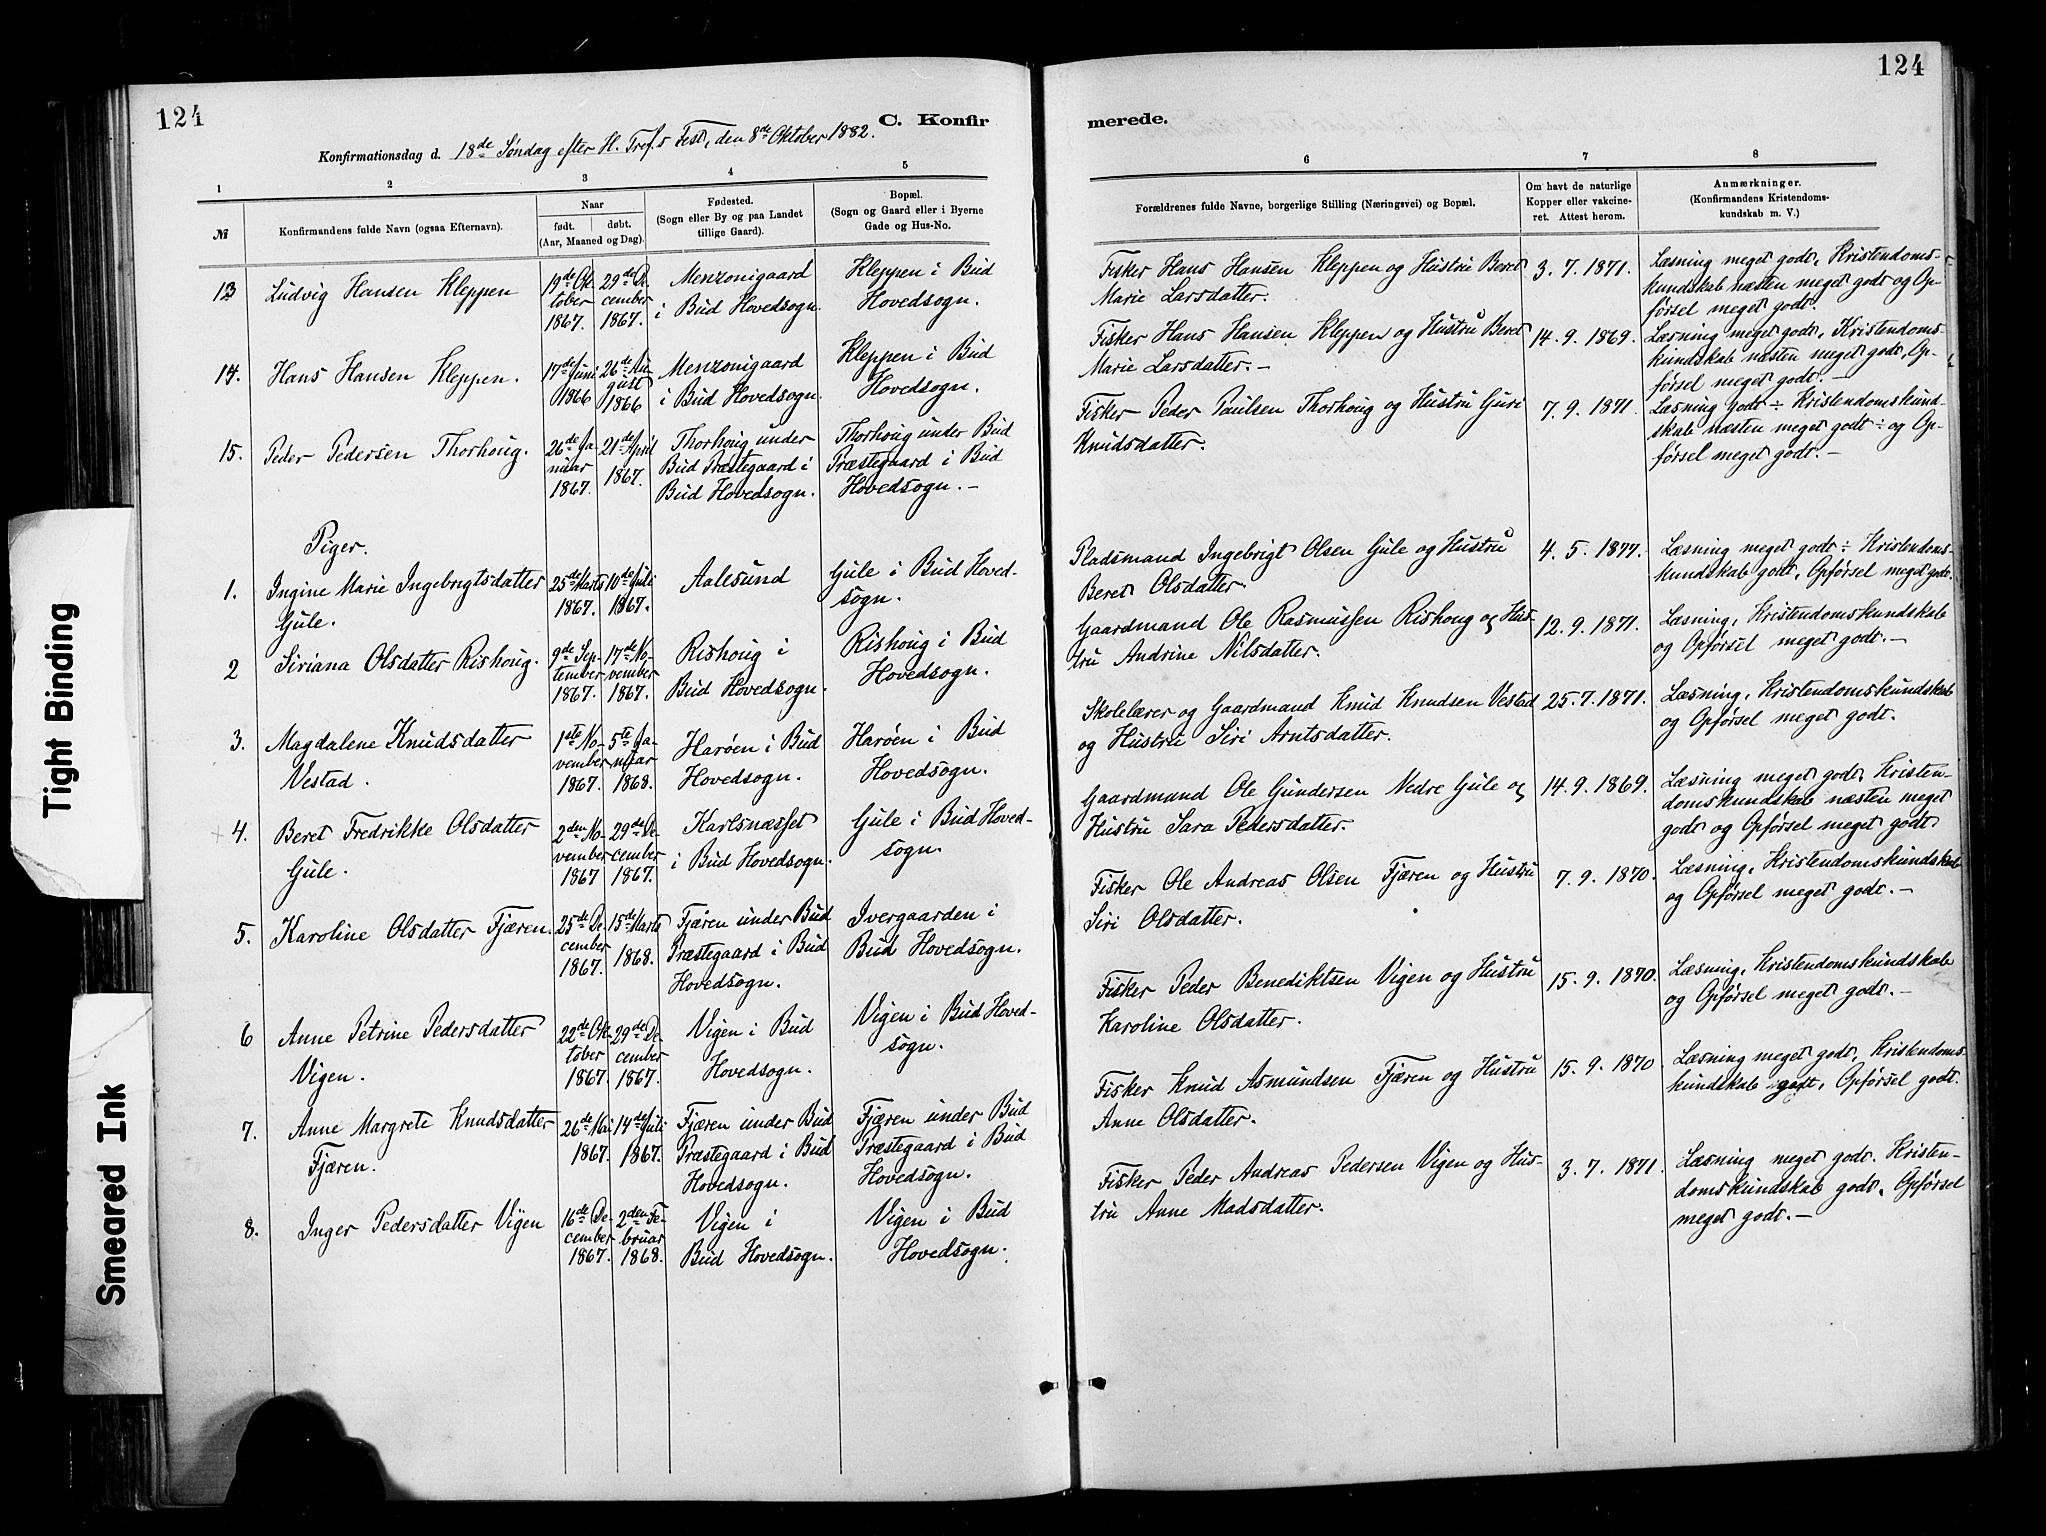 124
C. Konfir
Konfirmationsdag d. 18de Søndag efter H. Tref.s Fest, den 8de Oktober 1882.
1 2 3 4 5
№
Konfirmandens fulde Navn (ogsaa Efternavn).
Naar
født. døbt.
(Aar, Maaned og Dag).
Fødested.
(Sogn eller By og paa Landet
tillige Gaard).
Bopæl.
(Sogn og Gaard eller i Byerne
Gade og Hus-No.
13 Ludvig Hansen Kleppen
19de Ok-
tober
1867.
29de De-
cember
1867.
Menzonigaard
i Bud Hovedsogn.
Kleppen i Bud
Hovedsogn.
14. Hans Hansen Kleppen.
17de Juni
1866
26de Au-
gust
1866
Menzonigaard
i Bud Hovedsogn.
Kleppen i Bud
Hovedsogn.
15. Peder Pedersen Thorhoug.
26de Ja-
nuar
1867.
21de April
1867.
Thorhoug under
Bud Præstegaard i
Bud Hovedsogn.
Thorhoug under Bud
Præstegaard i Bud
Hovedsogn. –
Piger.
1. Ingine Marie Ingebrigtsdatter
Gule.
25de Marts
1867.
10de Juli
1867.
Aalesund
Gule i Bud Hoved-
sogn.
2 Siriana Olsdatter Rishoug.
9de Sep-
tember
1867.
17de No-
vember
1867.
Rishoug i
Bud Hovedsogn.
Rishoug i Bud
Hovedsogn.
3. Magdalene Knudsdatter
Vestad.
1ste No-
vember
1867.
5te Ja-
nuar
1868.
Harøen i Bud
Hovedsogn.
Harøen i Bud
Hovedsogn.
4. Beret Fredrikke Olsdatter
Gule.
2den No-
vember
1867
29de De-
cember
1867.
Karlsnæsset
i Bud Hovedsogn.
Gule i Bud Hoved-
sogn.
5. Karoline Olsdatter Fjæren.
25de De-
cember
1867.
15de Marts
1868.
Fjæren under Bud
Præstegaard i Bud
Hovedsogn.
Ivergaarden i
Bud Hovedsogn.
6 Anne Petrine Pedersdatter
Vigen.
22de Ok-
tober
1867.
29de De-
cember
1867.
Vigen i Bud
Hovedsogn.
Vigen i Bud Hoved-
sogn.
7. Anne Margrete Knudsdatter
Fjæren.
26de Mai
1867.
14de Juli
1867.
Fjæren under Bud
Præstegaard i Bud
Hovedsogn.
Fjæren under Bud
Præstegaard i Bud
Hovedsogn.
8. Inger Pedersdatter Vigen
16de De-
cember
1867.
2den Fe-
bruar
1868.
Vigen i
Bud Hovedsogn.
Vigen i Bud
Hovedsogn.
124
merede.
6 7 8
Forældrenes fulde Navne, borgerlige Stilling (Næringsvei) og Bopæl.
Om havt de naturlige
Kopper eller vakcine-
ret. Attest herom.
Anmærkninger.
(Konfirmandens Kristendoms-
kundskab m. V.)
Fisker Hans Hansen Kleppen og Hustru Beret
Marie Larsdatter.
3. 7. 1871.
Læsning meget godt, Kristendoms-
kundskab næsten meget godt og Op-
førsel meget godt.
Fisker Hans Hansen Kleppen og Hustru Beret
Marie Larsdatter. –
14. 9. 1869.
Læsning meget godt, Kristendoms-
kundskab næsten meget godt, Op-
førsel meget godt. –
Fisker Peder Paulsen Thorhoug og Hustru Guri
Knudsdatter.
7. 9. 1871.
Læsning godt ÷ Kristendomskund-
skab næsten meget godt ÷ og Op-
førsel meget godt. –
Pladsmand Ingebrigt Olsen Gule og Hustru
Beret Olsdatter.
4. 5. 1877.
Læsning meget godt ÷ Kristendoms-
kundskab godt, Opførsel meget godt.
Gaardmand Ole Rasmussen Rishoug og Hus-
tru Andrine Nilsdatter.
12. 9. 1871.
Læsning, Kristendomskundskab
og Opførsel meget godt. –
Skolelærer og Gaardmand Knud Knudsen Vestad
og Hustru Siri Arntsdatter.
25. 7. 1871.
Læsning, Kristendomskundskab
og Opførsel meget godt.
Gaardmand Ole Gundersen Nedre Gule og
Hustru Sara Pedersdatter.
14. 9. 1869.
Læsning meget godt, Kristen-
domskundskab næsten meget
godt og Opførsel meget godt.
Fisker Ole Andreas Olsen Fjæren og Hustru
Siri Olsdatter.
7. 9. 1870.
Læsning, Kristendomskundskab
og Opførsel meget godt. –
Fisker Peder Benediktsen Vigen og Hustru
Karoline Olsdatter.
15. 9. 1870.
Læsning, Kristendomskundskab
og Opførsel meget godt. –
Fisker Knud Asmundsen Fjæren og Hustru
Anne Olsdatter.
15. 9. 1870
Læsning meget godt, Kristendoms-
kundskab godt, Opførsel godt.
Fisker Peder Andreas Pedersen Vigen og Hus-
tru Anne Madsdatter.
3. 7. 1871.
Læsning meget godt. Kristen-
domskundskab godt, Opførsel
meget godt. –
Tight Binding
Smeared Ink